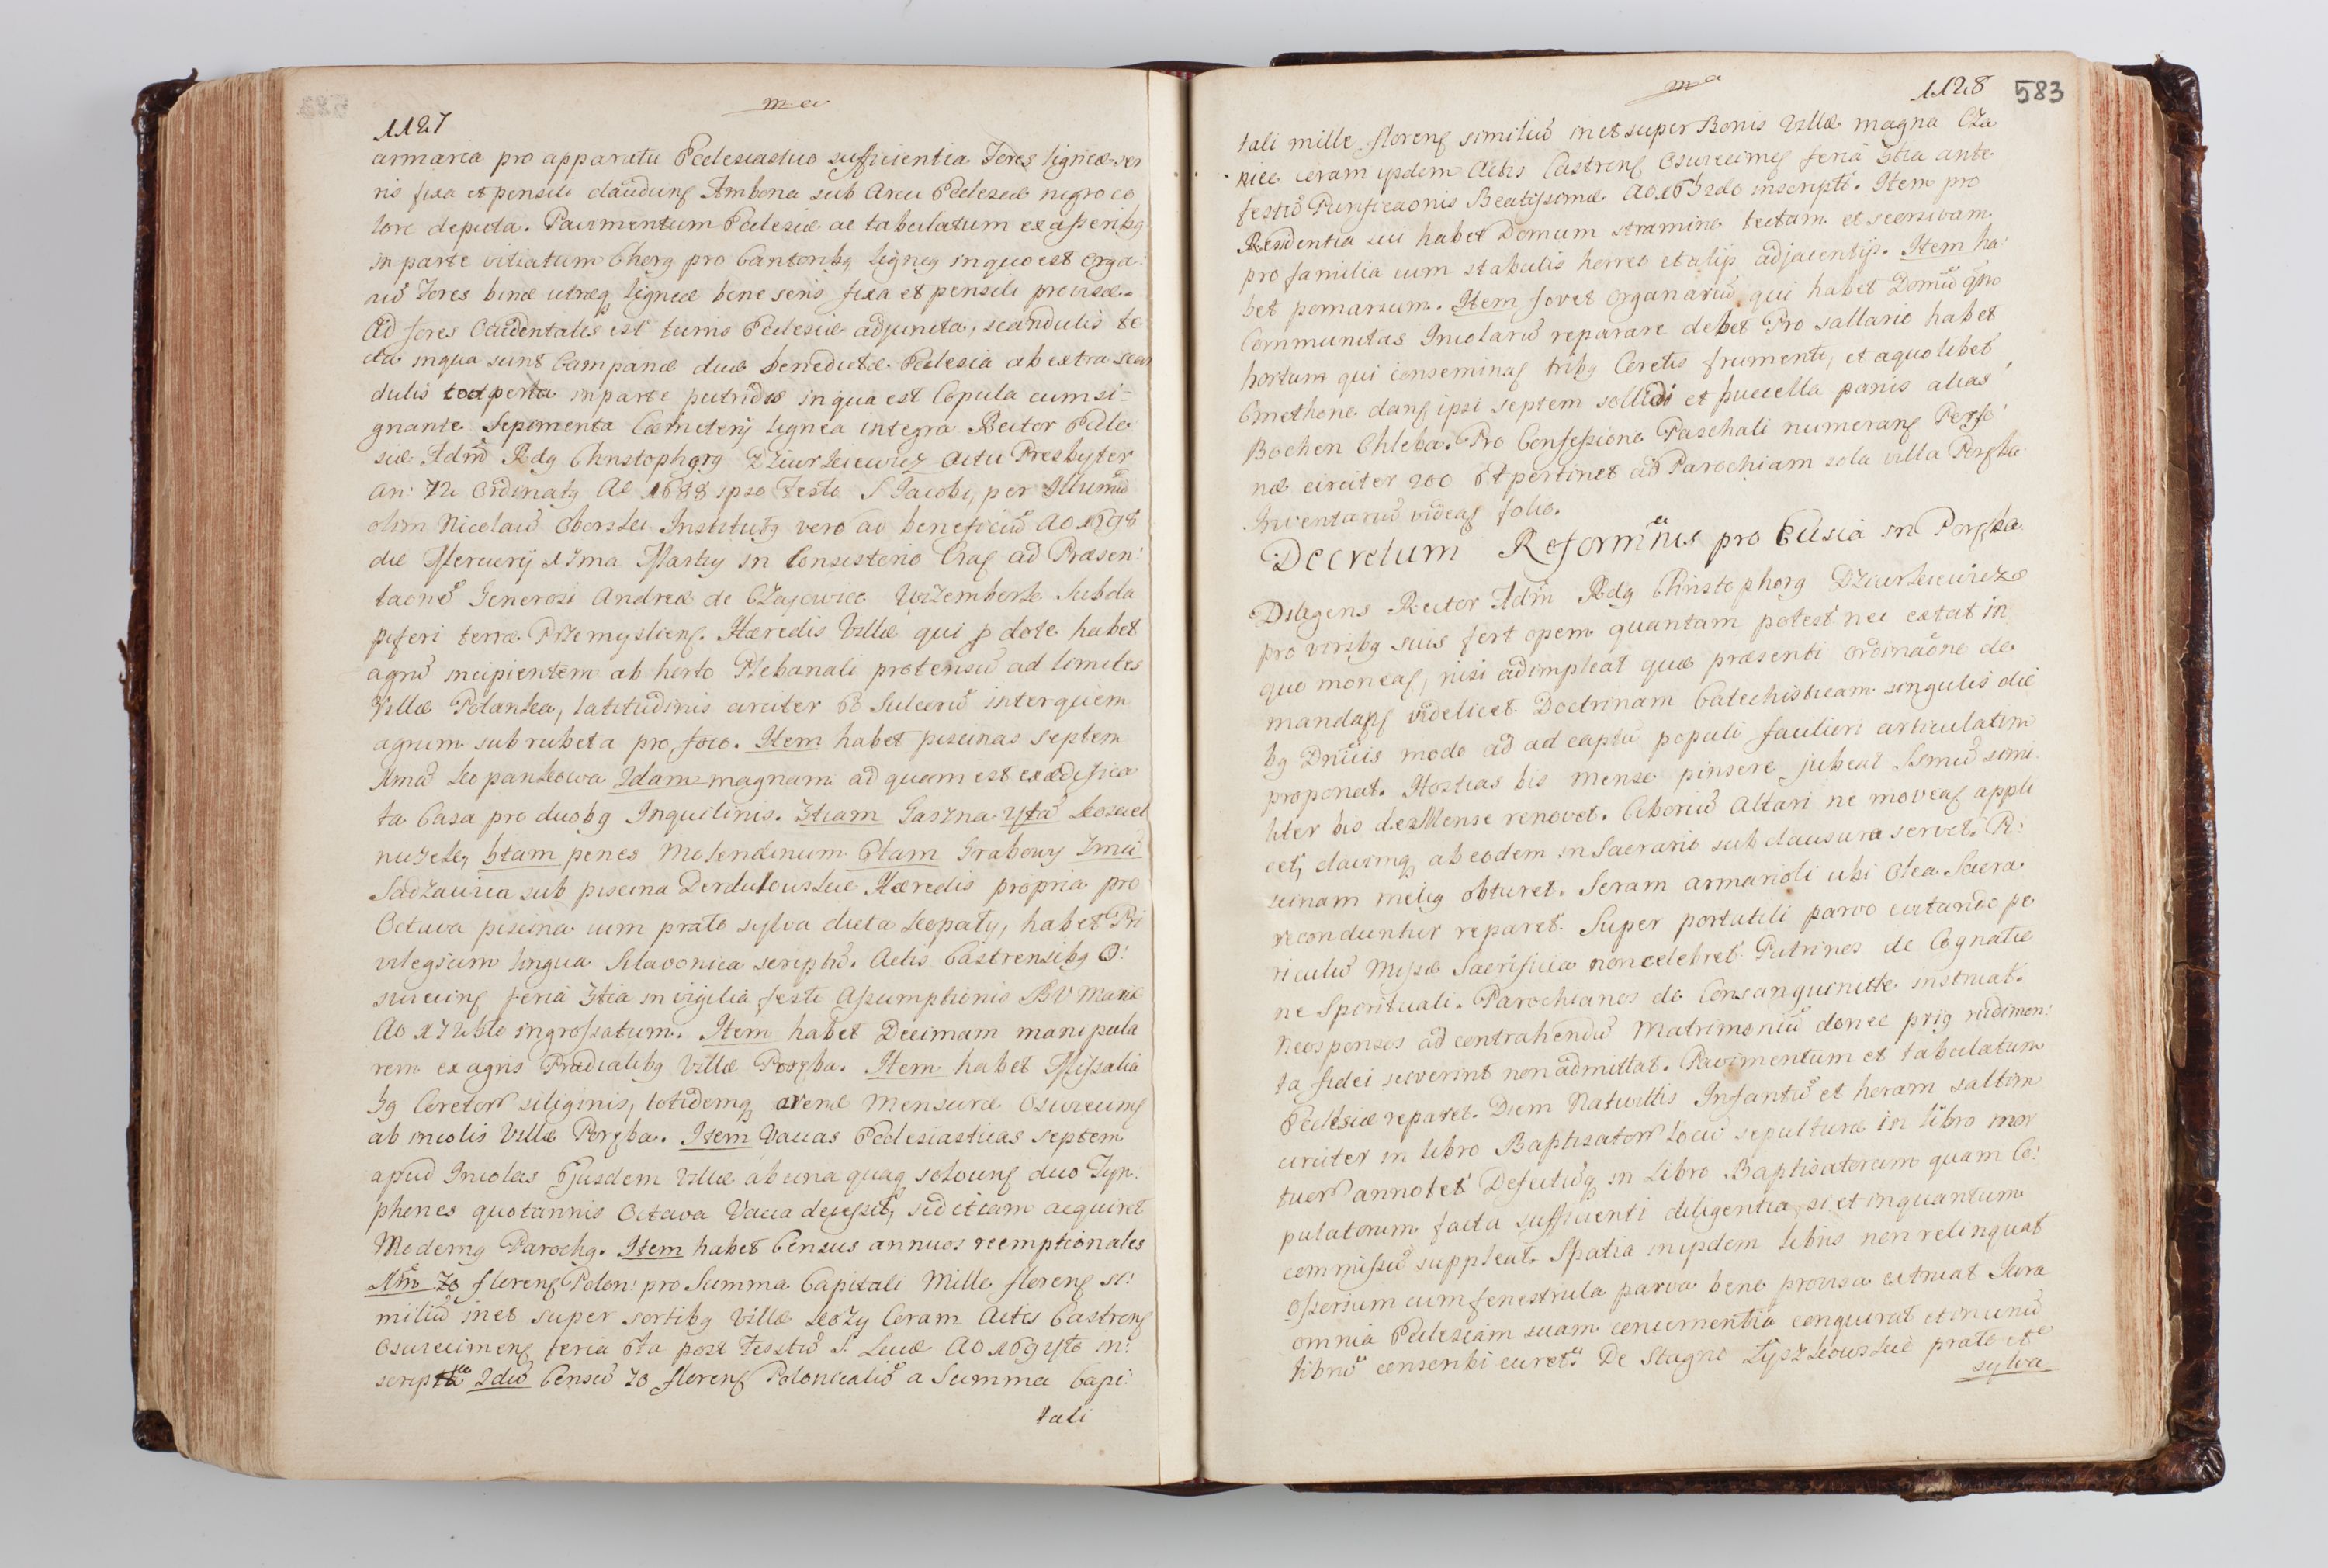 1127
armaria pro apparatu Ecclesiastico sufficientia Fores ligneæ ser
ris fixa et pensili claudunt Ambona sub Arcu Ecclesiæ nigro co
lore depicta. Pavimentum Ecclesiæ ac tabulatum ex asseribg
in parte vitiatum Chorg pro Cantoribg ligneg in quo est Orga:
nũ Fores binæ utræq ligneæ bene seris fixa et pensili provisæ.
Ad fores Occidentales est turris Ecclesiæ adjuncta, scandulis te
cta in qua sunt Campanæ duæ benedictæ. Ecclesia ab extra scan
dulis in parte putridis in qua est Copula cum si=
gnante Sepimenta Cæmeterij lignea integra Rector Eccle
siæ Adm̃ Rdg Christophorg Dziurkiewicz Actu Presbyter
an: 72 Ordinatg Ao 1688 ipso Festo S Jacobi, per Illum̃
olim Nicolaũ Oborski Institutg vero ad beneficiũ Ao 1698
die Mercurij 17ma Martij in Consistorio Crac ad Præsen:
taonẽ Generosi Andreæ de Czajowice Wizemberk Subda
piferi terræ Przemysliens. Hæredis Villæ qui p dote habet
agrũ incipientem ab horto Plebanali protensũ ad limites
Villæ Polanka, latitudinis circiter 60 Sulcorũ inter quem
agrum sub rubeta pro foco. Item habet piscinas septem
1mã Kopankowa 2dam magnam ad quam est exædifica
ta Casa pro duobg Inquilinis. 3tiam Gaszna 4tã
5tam penes Molendinum 6tam Grabowy 7mã
Sadzawica sub piscina Hæredis propria pro
Octava piscina cum prato sylva dicta Kopaty, habet Pri
vilegium lingua Sclavonica scriptũ. Actis Castrensibg O:
swiecims feria 3tia in vigilia festi Assumptionis BV Mariæ
Ao ingrossatum. Item habet Decimam manipula
rem ex agris Prædialibg Villæ Poręba. Item habet Missalia
Coretorũ siliginis, totidemq avenæ mensuræ Oswiecims
ab incolis Villæ Poręba. Item Vaccas Ecclesiasticas septem
apud Incolas Ejusdem Villæ ab una quaq solvuns duo Tym:
phones quotannis Octava Vacca decessit, sed etiam acquiret
Moderng Parochg. Item habet Census annuos reemptionales
70 florens Polon: pro Summa Capitali Mille florens si:
miliũ in et super sortibg Villæ Kozy Coram Actis Castrens
Oswiecimens feria 6ta post Festũ S. Lucæ Ao in:
scriptũ 2dũ Censũ 70 florens Polonicaliũ a Summa Capi:
tali
1128
583
tali mille florens similiũ in et super Bonis Villæ magna Cza
niec coram ijsdem Actis Castrens Oswiecimes feria 3tia ante
festũ Purificaonis Beatissimæ inscripti. Item pro
Residentia sui habet Domum stramine tectam et seorsivam
pro familia cum stabulis horreo et alijs adjacentijs. Item ha:
bet pomarium. Item fovet Organariũ, qui habet Domũ qm̃
Communitas Incolarũ reparare debet Pro sallario habet
hortum qui conseminat tribg Coretis frumenti, et a quolibet
Cmethone dans ipsi septem sollidi et buccella panis alias
Bochen Chleba. Pro Confessione Paschali numerans Perso:
næ circiter 200 Et pertinet ad Parochiam sola villa Poręba
Inventariũ videas folio.
Decretum Reformñis pro Ecclsia in Poręba
Diligens Rector Adm̃ Rdg Christophorg Dziurkiewicz
pro viribg suis fert opem quantam potest nec extat in
quo moneas, nisi adimpleat quæ præsenti Ordinaõne de
mandans videlicet Doctrinam Catechisticam singulis die
bg Dnĩcis modo ad captũ populi faciliori articulatim
proponat. Hostias bis mense pinsere jubeat Ssmũ simi
liter bis de Mense renovet. Ciboriũ Altari ne moveas appli
cet, clavimq ab eodem in Sacrario sub clausura servet. Pi:
scinam melig obturet. Seram armarioli ubi Olea Sacra
reconduntur reparet. Super portatili parvo evitando pe
riculũ Missæ Sacrificia non celebret. Patrinos de Cognatio
ne Spirituali. Parochianos de Consanguinitte instruat.
Neosponsos ad contrahendũ Matrimoniũ donec prig rudimen:
ta fidei sciverint non admittat. Pavimentum et tabulatum
Ecclesiæ reparet. Diem Nativittis Infantiũ et horam saltim
circiter in libro Baptisatorũ Locũ sepulturæ in libro mor
tuorũ annotet Defectuq in Libro Baptisatorum quam Co:
pulatorum facta sufficienti diligentia, si et in quantum
commissũ suppleat. Spatia in ijsdem libris non relinquat
Ossorium cum fenestrula parva bene provisa extruat Jura
omnia Ecclesiam suam concernentia conquirat et in unũ
librũ conscribi curet. De Stagno Lyszkowskie prato etc
sylva